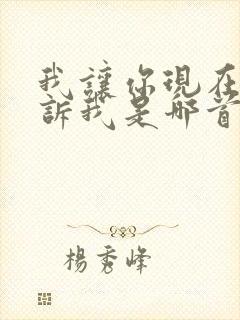 我讓你現在
訴我是那首
楊秀峰